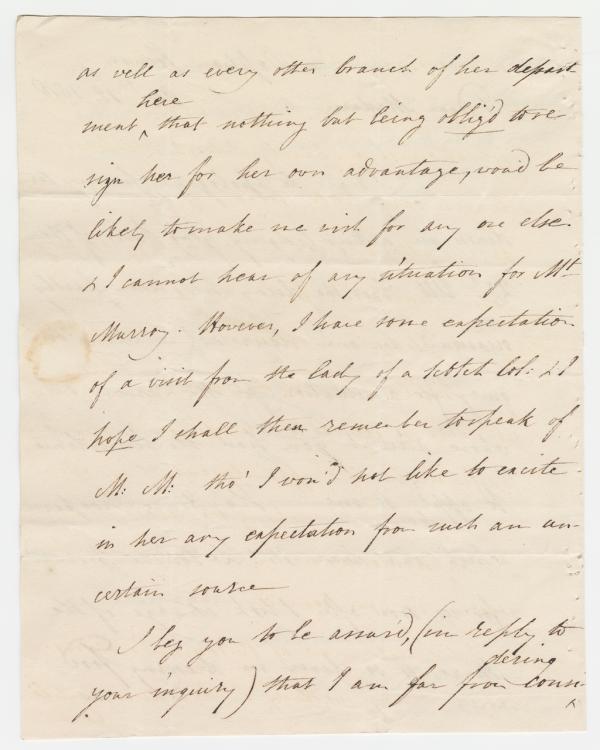 as well as every other branch of her depart
here
ment ^ that nothing but being oblig'd to re
sign her for her own advantage, wou'd be
likely to make me wish for any one else
& I cannot hear of any situation for Mrs
Murray. However, I have some expectation
of a visit from the Lady of a Scotch Col: & I
hope I shall then remember to speak of
M: M: tho' I wou'd not like to excite
in her any expectation from such an un-
certain source
I beg you to be assur'd, (in reply to
dering
your inquiry) that I am far from consi ^